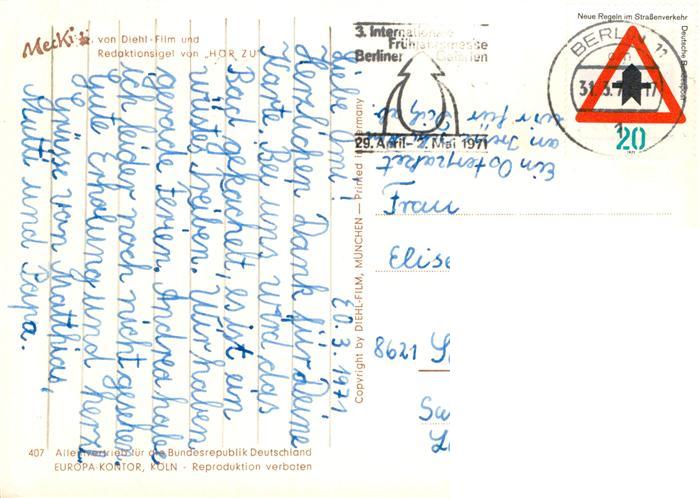 Mecki von Diehl-Film und
Redaktionsigel von „HÖR ZU"
30.3.1971
Liebe Omi!
Herzlichen Dank für Deine
Karte. Bei uns wird das
Bad gekachelt, es ist ein
wüstes Treiben. Wir haben
gerade Ferien. Andrea habe
ich leider noch nicht gesehen.
Gute Erholung und herzl.
Grüsse von Matthias,
Mutti und Papa.
Ein Osterpaket
wir für
ab.
407 Alleinvertrieb für die Bundesrepublik Deutschland
EUROPA-KONTOR, KÖLN - Reproduktion verboten
Copyright by DIEHL-FILM, MÜNCHEN — Printed in Germany
3. Internationale
Frühjahrsmesse
Berliner Galerien
29. April-2. Mai 1971
BERLIN 11
31.3.71-17
Neue Regeln im Straßenverkehr
Deutsche Bundespost
20
Frau
8621